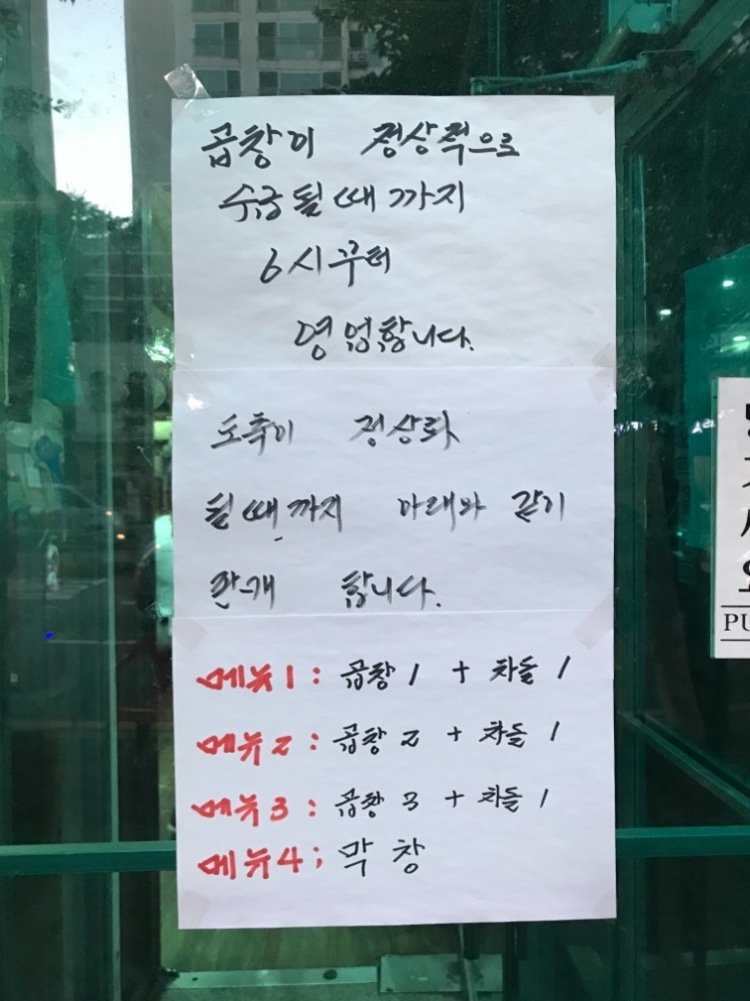 곱창이 정상적으로
수급될때까지
6시부터
영업합니다.
도축이 정상화
될때까지 아래와 같이
판매 합니다.
메뉴1: 곱창 1 + 차돌 1
메뉴2: 곱창 2 + 차돌 1
메뉴3: 곱창 3 + 차돌 1
메뉴4; 막창
PU